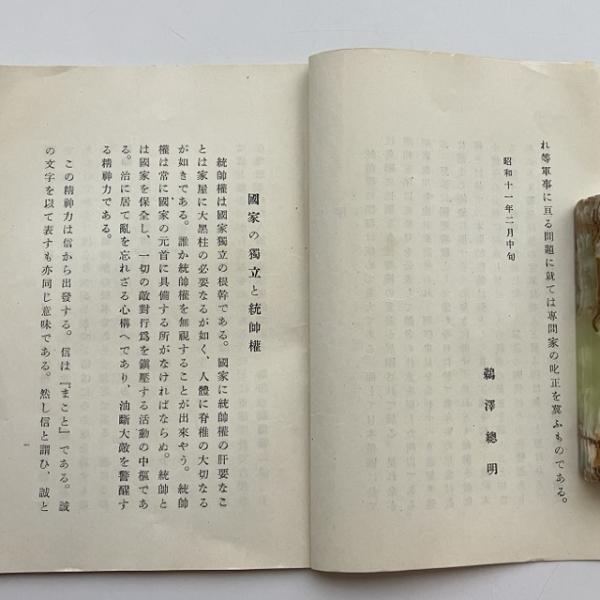 れ等軍事に亙る問題に就ては專門家の叱正を冀ふものである。
昭和十一年二月中旬
鵜澤總明
國家の獨立と統帥權
統帥權は國家獨立の根幹である。國家に統帥權の肝要なこ
とは家屋に大黑柱の必要なるが如く、人體に脊椎の大切なる
が如きである。誰か統帥權を無視することが出來やう。統帥
權は常に國家の元首に具備する所がなければならぬ。統帥と
は國家を保全し、一切の敵對行爲を鎭壓する活動の中樞であ
る。治に居て亂を忘れざる心構へであり、油斷大敵を警醒す
る精神力である。
この精神力は信から出發する。信は『まこと』である。誠
の文字を以て表すも亦同じ意味である。然し信と謂ひ、誠と